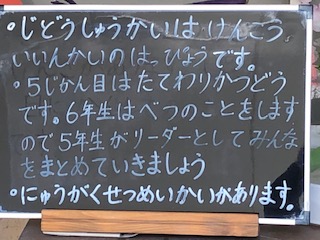 ・じどうしゅうかいは けんこう
いいんかいのはっぴょうです。
・5じかん目はたてわりかつどう
です。6年生はべつのことをします
ので5年生がリーダーとしてみんな
をまとめていきましょう
・にゅうがくせつめいかいがあります。